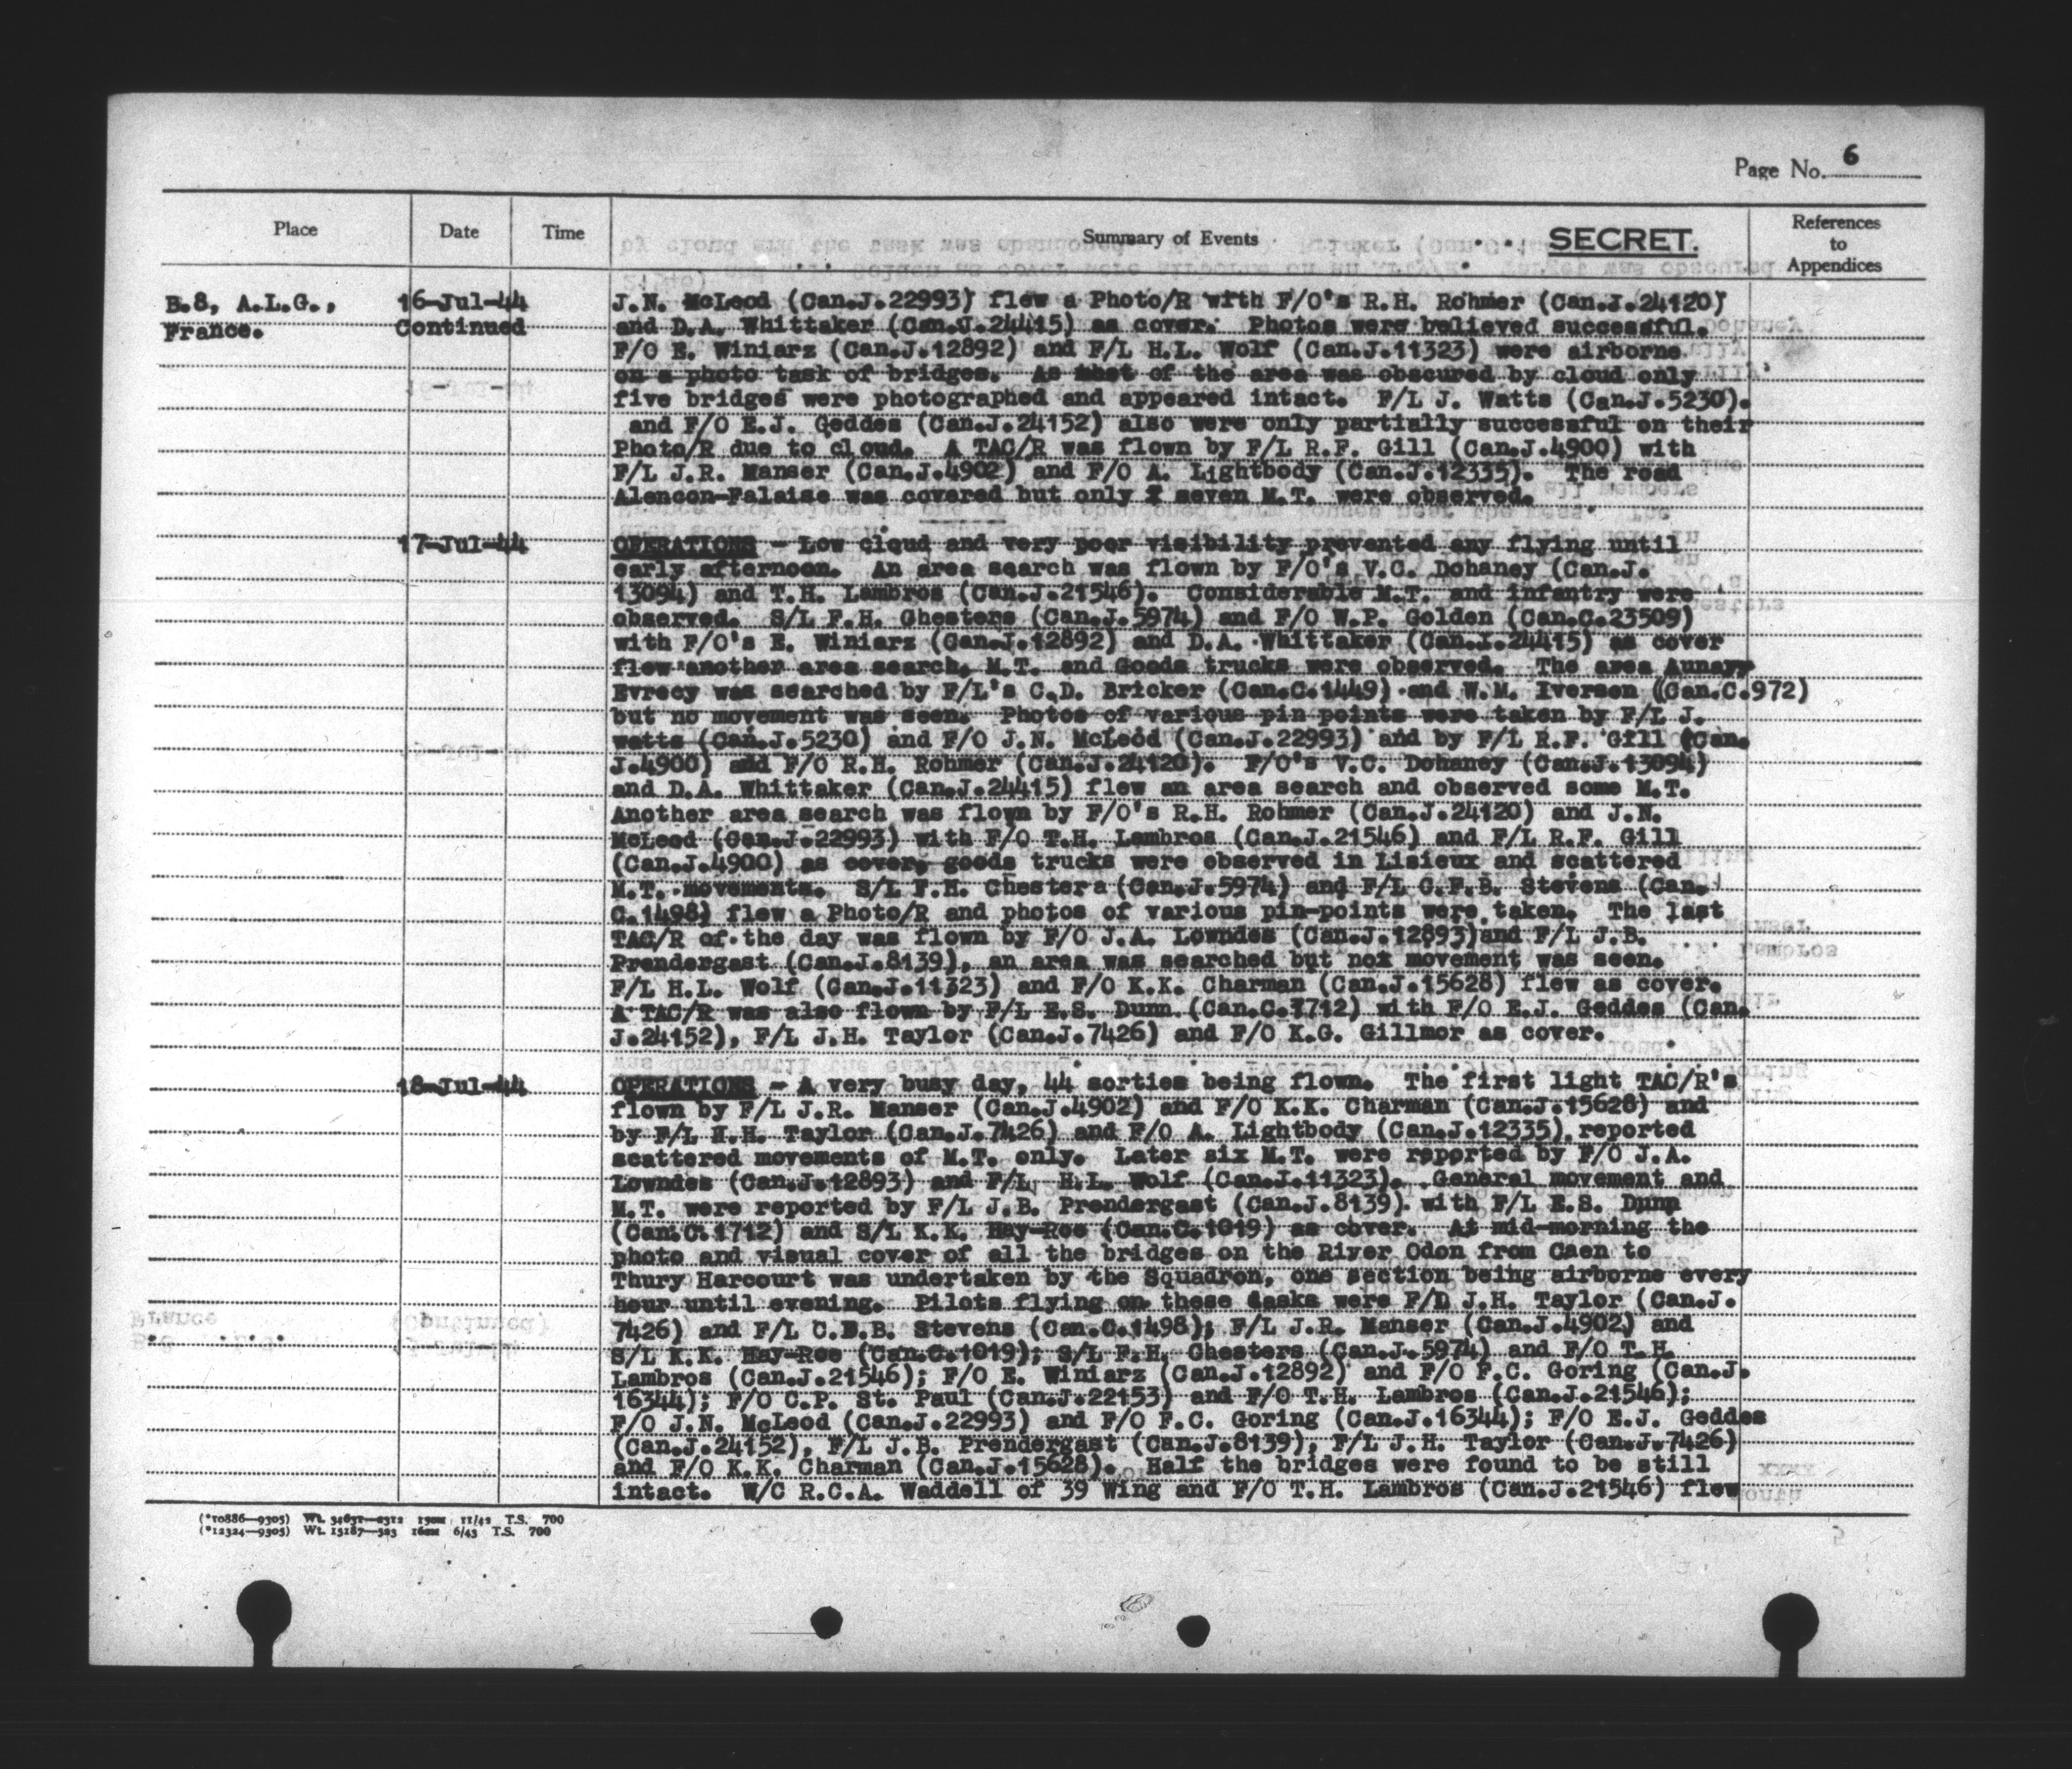 Page No. 6
Place Date Time Summary of Events SECRET. References to Appendices
B.8, A.L.G., 16-Jul-44 J.N. McLeod (Can.J.22993) flew a Photo/R with F/O's R.H. Rohmer (Can.J.24120)
France. Continued and D.A. Whittaker (Can.J.24415) as cover. Photos were believed successful.
F/O E. Winiarz (Can.J.12892) and F/L H.L. Wolf (Can.J.11323) were airborne
on a photo task of bridges. As most of the area was obscured by cloud only
five bridges were photographed and appeared intact. F/L J. Watts (Can.J.5230).
and F/O E.J. Geddes (Can.J.24152) also were only partially successful on their
Photo/R due to cloud. A TAC/R was flown by F/L R.F. Gill (Can.J.4900) with
F/L J.R. Manser (Can.J.4902) and F/O A. Lightbody (Can.J.12335). The road
Alencon-Falaise was covered but only seven M.T. were observed.
17-Jul-44 OPERATIONS - Low cloud and very poor visibility prevented any flying until
early afternoon. An area search was flown by F/O's V.C. Dohaney (Can.J.
13094) and T.H. Lambros (Can.J.21546). Considerable M.T. and infantry were
observed. S/L F.H. Chesters (Can.J.5974) and F/O W.P. Golden (Can.C.23509)
with F/O's E. Winiarz (Can.J.12892) and D.A. Whittaker (Can.J.24415) as cover
flew another area search. M.T. and Goods trucks were observed. The area Aunay
Evrecy was searched by F/L's C.D. Bricker (Can.C.1449) and W.M. Iverson (Can.C.972)
but no movement was seen. Photos of various pin points were taken by F/L J.
watts (Can.J.5230) and F/O J.N. McLeod (Can.J.22993) and by F/L R.F. Gill (Can.
J.4900) and F/O R.H. Rohmer (Can.J.24120). F/O's V.C. Dohaney (Can.J.13094)
and D.A. Whittaker (Can.J.24415) flew an area search and observed some M.T.
Another area search was flown by F/O's R.H. Rohmer (Can.J.24120) and J.N.
McLeod (Can.J.22993) with F/O T.H. Lambros (Can.J.21546) and F/L R.F. Gill
(Can.J.4900) as cover, goods trucks were observed in Lisieux and scattered
M.T. movements. S/L F.H. Chesters (Can.J.5974) and F/L C.F.B. Stevens (Can.
C.1498) flew a Photo/R and photos of various pin-points were taken. The last
TAC/R of the day was flown by F/O J.A. Lowndes (Can.J.12893)and F/L J.B.
Prendergast (Can.J.8139), an area was searched but nox movement was seen.
F/L H.L. Wolf (Can.J.11323) and F/O K.K. Charman (Can.J.15628) flew as cover.
A TAC/R was also flown by F/L E.S. Dunn (Can.C.1712) with F/O E.J. Geddes (Can.
J.24152), F/L J.H. Taylor (Can.J.7426) and F/O K.G. Gillmor as cover.
18-Jul-44 OPERATIONS - A very busy day, 44 sorties being flown. The first light TAC/R's
flown by F/L J.R. Manser (Can.J.4902) and F/O K.K. Charman (Can.J.15628) and
by F/L H.H. Taylor (Can.J.7426) and F/O A. Lightbody (Can.J.12335), reported
scattered movements of M.T. only. Later six M.T. were reported by F/O J.A.
Lowndes (Can.J.12893) and F/L H.L. Wolf (Can.J.11323). General movement and
M.T. were reported by F/L J.B. Prendergast (Can.J.8139). with F/L E.S. Dunn
(Can.C.1712) and S/L K.K. Hay-Roe (Can.C.1019) as cover. At mid-morning the
photo and visual cover of all the bridges on the River Odon from Caen to
Thury Harcourt was undertaken by the Squadron, one section being airborne every
hour until evening. Pilots flying on these were J.H. Taylor (Can.J.
7426) and F/L Stevens (Can.C.1498); F/L J.R. Manser (Can.J.4902) and
S/L K.K. Hay-Roe (Can.C.1019); S/L F.H. Chesters (Can.J.5974) and F/O T.H.
Lambros (Can.J.21546); F/O E. Winiarz (Can.J.12892) and F/O F.C. Goring (Can.J.
16344); F/O C.P. St. Paul (Can.J.22153) and F/O T.H. Lambros (Can.J.21546);
F/O J.N. McLeod (Can.J.22993) and F/O F.C. Goring (Can.J.16344); F/O E.J. Geddes
(Can.J.24152), F/L J.B. Prendergast (Can.J.8139), F/L J.H. Taylor (Can.J.7426)
and F/O K.K. Charman (Can.J.15628). Half the bridges were found to be still
intact. W/C R.C.A. Waddell of 39 Wing and F/O T.H. Lambros (Can.J.21546) flew
(*10886—9305) Wt. 11/42 T.S. 700
(*12324—9305) Wt. 15187—523 6/43 T.S. 700